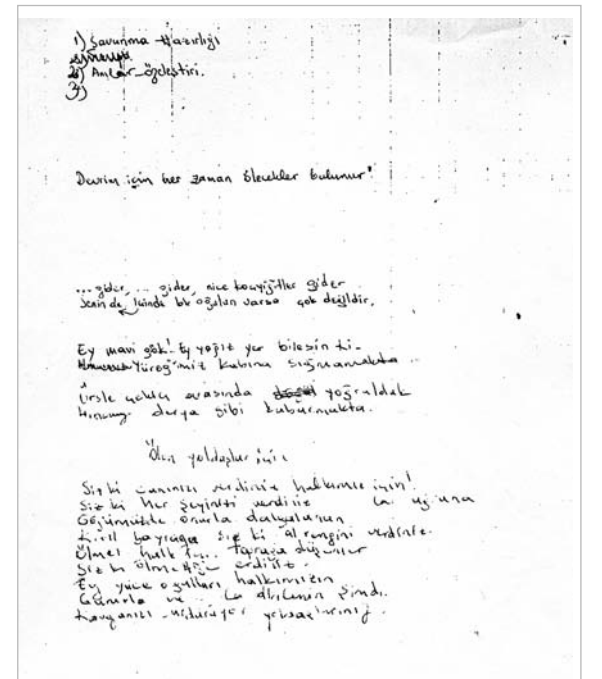 1) Savunma Hazırlığı
2) Anılar - özeleştiri.
3)
Devrim için her zaman ölecekler bulunur"
... gider, ... gider, nice koçyiğitler gider
Senin de içinde bir oğulun varsa çok değildir,
Ey mavi gök! Ey yağız yer bilesin ki -
Yüreğimiz kabına sığmamakta
Örsle arasında yoğrulduk
Hıncımız derya gibi kabarmakta.
Ölen yoldaşlar için
Siz ki canınızı verdiniz halkımız için!
Siz ki her şeyinizi verdiniz uğruna
Göğümüzde onurla dalgalanan
Kızıl bayrağa siz ki al rengini verdiniz.
Ölmez halk için toprağa düşenler
Siz ki ölmezliğe erdiniz.
Ey yüce oğulları halkımızın
Gururla ve şimdi.
Kavganızı